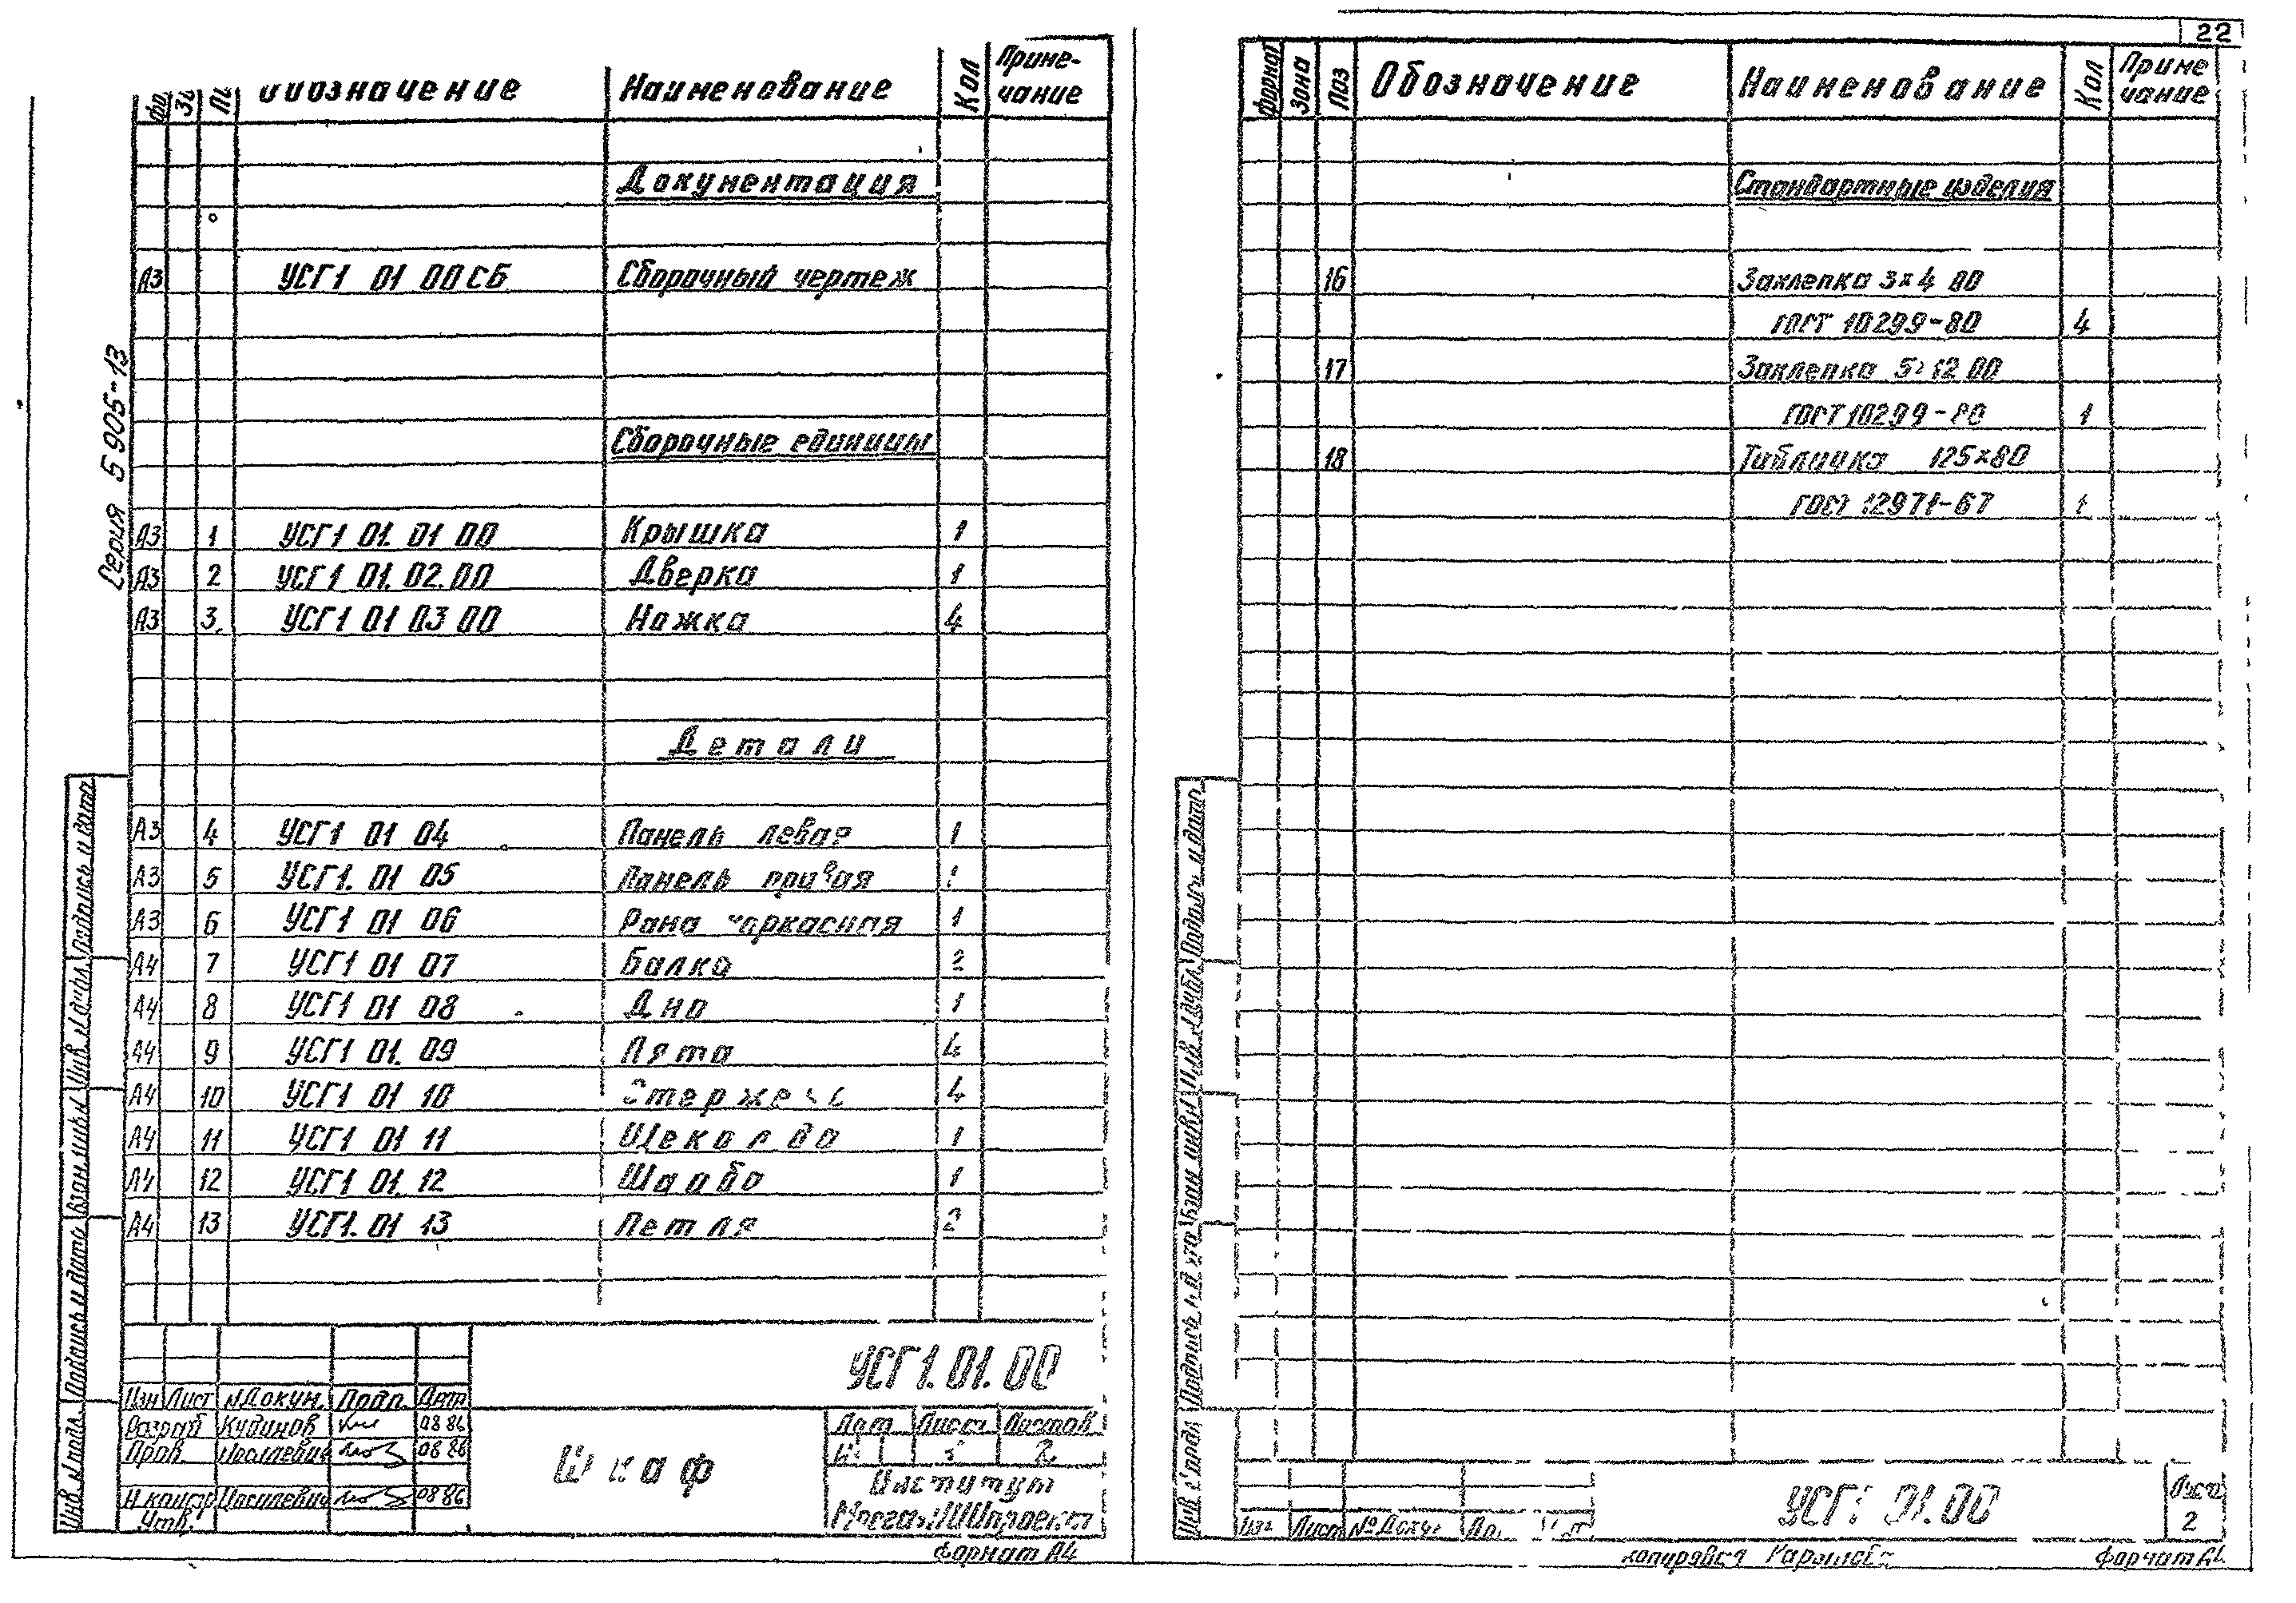 22
Серия 5 905-13
Обозначение Наименование Кол Приме-
чание
Документация
А3 УСГ1 01 00 СБ Сборочный чертеж
Сборочные единицы
А3 1 УСГ1 01. 01 00 Крышка 1
А3 2 УСГ1 01. 02. 00 Дверка 1
А3 3. УСГ1 01 03 00 Ножка 4
Детали
А3 4 УСГ1 01 04 Панель левая 1
А3 5 УСГ1. 01 05 Панель правая 1
А3 6 УСГ1 01 06 Рама каркасная 1
А4 7 УСГ1 01 07 Балка 2
А4 8 УСГ1 01 08 Дно 1
А4 9 УСГ1 01. 09 Пята 4
А4 10 УСГ1 01 10 Стержень 4
А4 11 УСГ1 01 11 Щеколда 1
А4 12 УСГ1 01. 12 Шайба 1
А4 13 УСГ1. 01 13 Петля 2
УСГ1. 01. 00
Изм Лист №Докум. Подп. Дата
Разраб Кудинов 08 86
Пров. 08 86
Н контр 08 86
Утв.
Шкаф
Лит Лист Листов
2
Институт
МосгазНИИпроект
Формат А4
Инв. № подл. Подпись и дата Взам. инв № Инв. № дубл. Подпись и дата
Формат Зона Поз Обозначение Наименование Кол Приме
чание
Стандартные изделия
16 Заклепка 3×4 00
ГОСТ 10299-80 4
17 Заклепка 5×12 00
ГОСТ 10299-80 1
18 Табличка 125×80
ГОСТ 12971-67 1
УСГ1 01. 00
Лист
2
Изм Лист №Докум
Копировал
Формат А4
Инв № подл Подпись и дата Взам инв № Инв. № дубл Подпись и дата